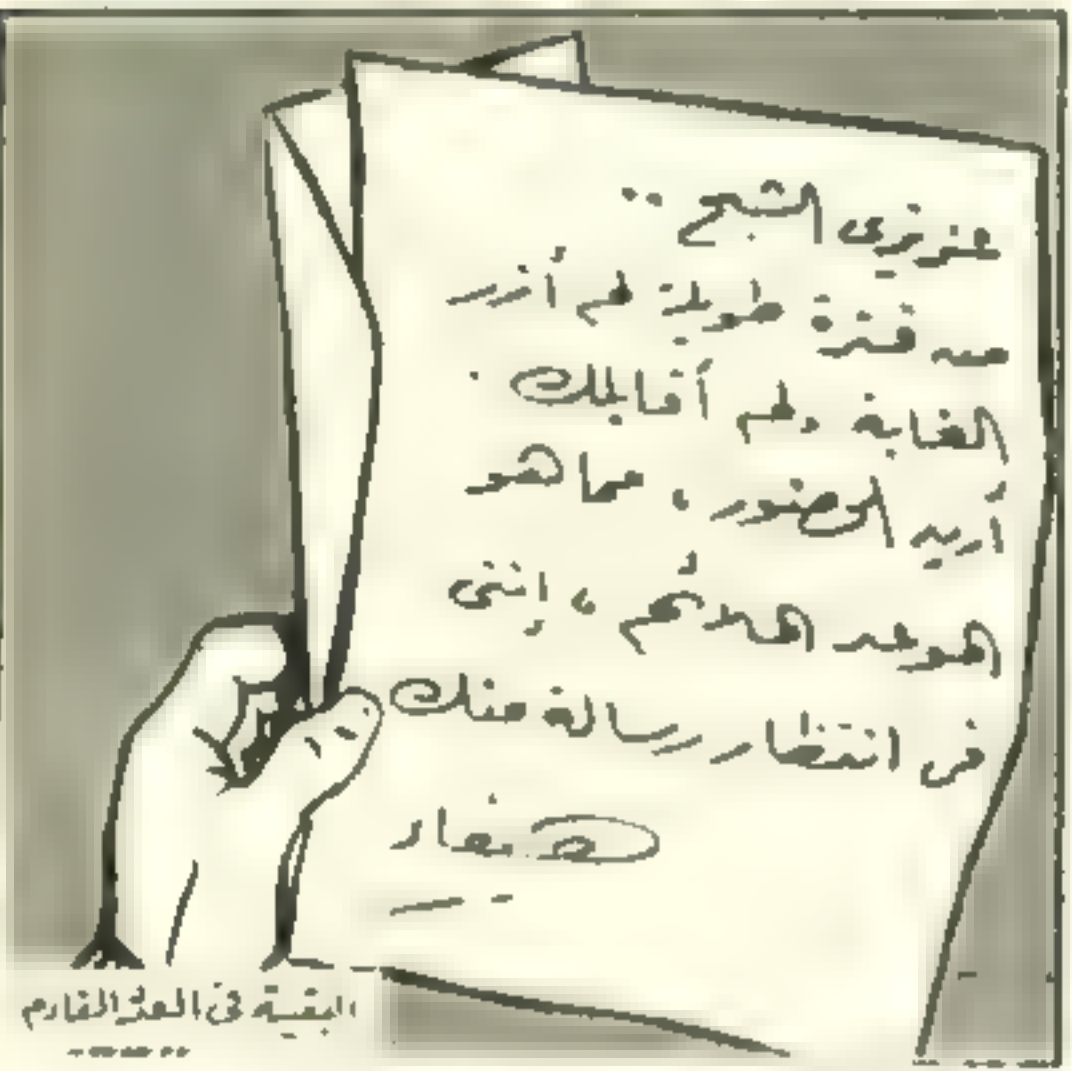 عزيزي الشبح ..
من فترة طويلة لم أزر
الغابة ولم أقابلك .
أريد الحضور ، مما هو
الموعد الملائم ، إنني
في انتظار رسالة منك
البقية في العدد القادم